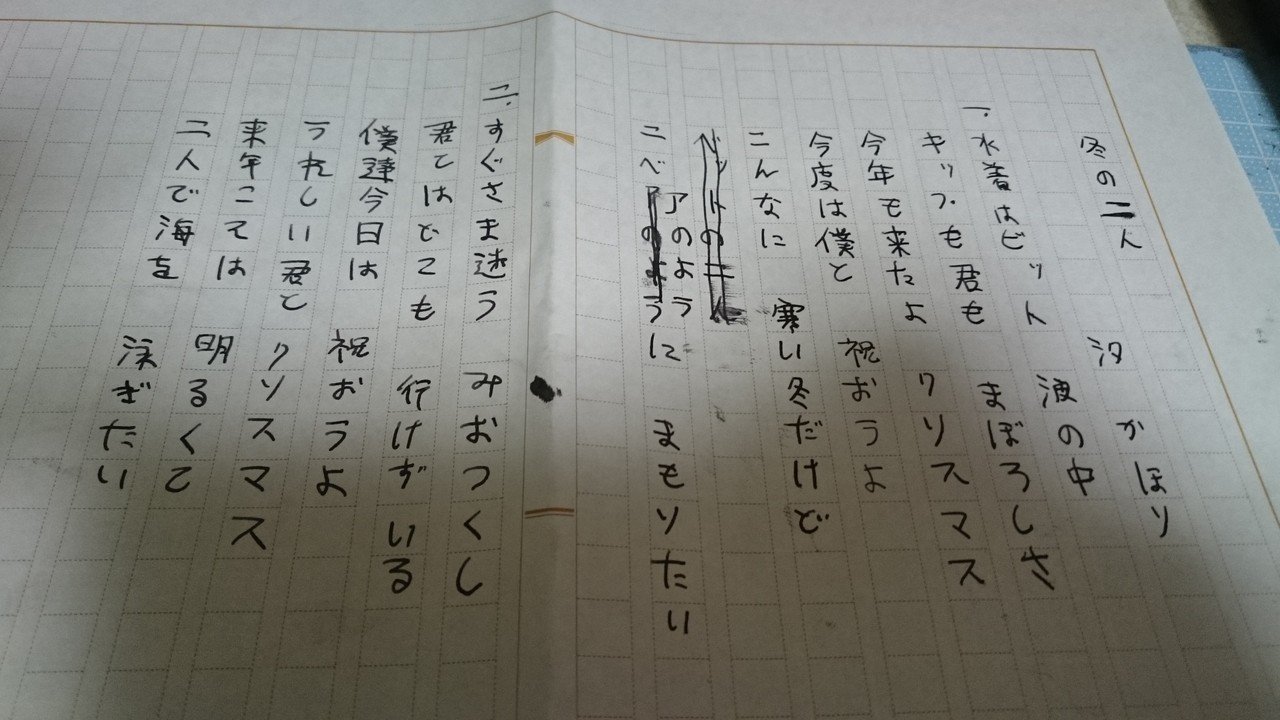 冬の二人
汐 かほり
一.水着はビット 波の中
キップも君も まぼろしさ
今年も来たよ クリスマス
今度は僕と 祝おうよ
こんなに 寒い冬だけど
アのように
ニベ まもりたい
二.すぐさま送う みおつくし
君てはどこも 行けずいる
僕達今日は 祝おうよ
うれしい君と クリスマス
来年こては 明るくて
二人で海を 泳ぎたい